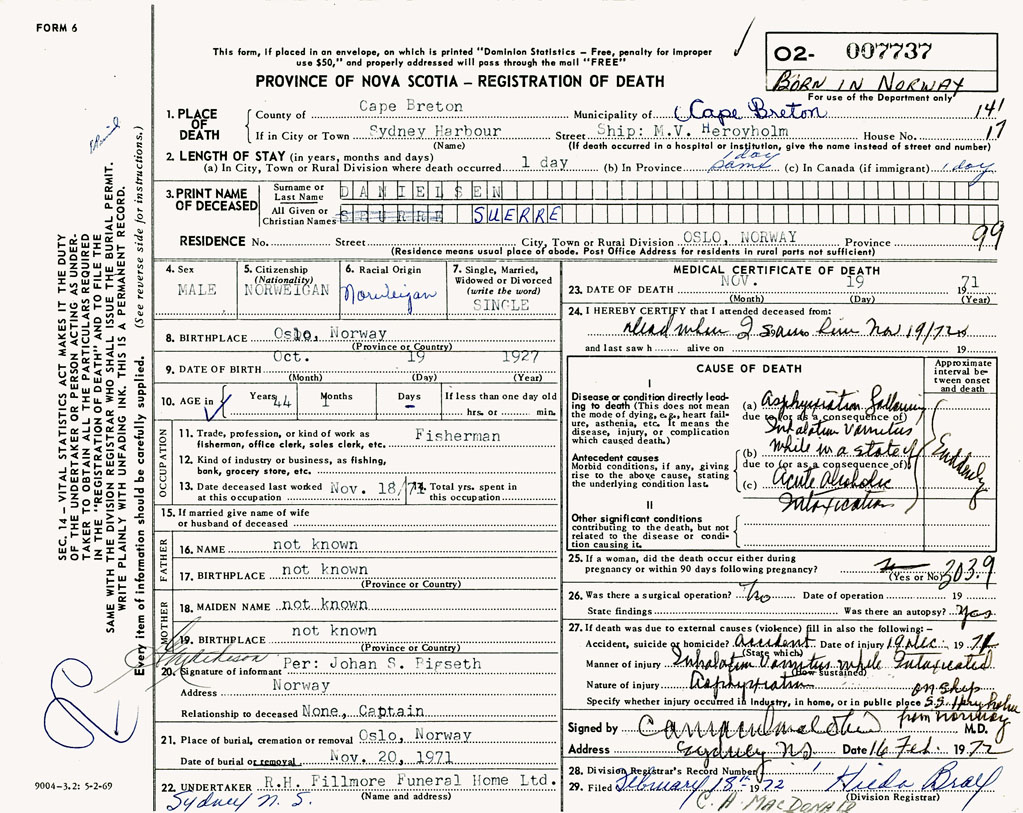 FORM 6
This form, if placed in an envelope, on which is printed "Dominion Statistics – Free, penalty for improper
use $50," and properly addressed will pass through the mail "FREE"
PROVINCE OF NOVA SCOTIA – REGISTRATION OF DEATH
O2- 007737
BORN IN NORWAY
For use of the Department only
141
17
1. PLACE OF DEATH
County of Cape Breton Municipality of Cape Breton
If in City or Town Sydney Harbour Street Ship: M.V. Heroyholm House No.
(Name) (If death occurred in a hospital or institution, give the name instead of street and number)
2. LENGTH OF STAY (in years, months and days)
(a) In City, Town or Rural Division where death occurred 1 day (b) In Province 1 day same (c) In Canada (if immigrant) 1 day
3. PRINT NAME OF DECEASED
Surname or Last Name DANIELSEN
All Given or Christian Names SEURRE SUERRE
99
RESIDENCE No. Street City, Town or Rural Division OSLO, NORWAY Province
(Residence means usual place of abode. Post Office Address for residents in rural parts not sufficient)
4. Sex
MALE
5. Citizenship
(Nationality)
NORWEIGAN
6. Racial Origin
Norweigan
7. Single, Married,
Widowed or Divorced
(write the word)
SINGLE
8. BIRTHPLACE Oslo, Norway
(Province or Country)
9. DATE OF BIRTH Oct. 19 1927
(Month) (Day) (Year)
10. AGE in Years 44 Months Days - If less than one day old
hrs. or min.
OCCUPATION
11. Trade, profession, or kind of work as
fisherman, office clerk, sales clerk, etc. Fisherman
12. Kind of industry or business, as fishing,
bank, grocery store, etc.
13. Date deceased last worked
at this occupation Nov. 18/71
14. Total yrs. spent in
this occupation
15. If married give name of wife
or husband of deceased
FATHER
16. NAME not known
17. BIRTHPLACE not known
(Province or Country)
MOTHER
18. MAIDEN NAME not known
19. BIRTHPLACE not known
(Province or Country)
20. Signature of informant Per: Johan S. Rigseth
Address Norway
Relationship to deceased None, Captain
21. Place of burial, cremation or removal Oslo, Norway
Date of burial or removal Nov. 20, 1971
22. UNDERTAKER R.H. Fillmore Funeral Home Ltd.
(Name and address)
Sydney N. S.
MEDICAL CERTIFICATE OF DEATH
23. DATE OF DEATH NOV. 19 1971
(Month) (Day) (Year)
24. I HEREBY CERTIFY that I attended deceased from:
dead when I saw him Nov 19/72 19
and last saw h alive on 19
CAUSE OF DEATH
Approximate
interval be-
tween onset
and death
I
Disease or condition directly lead-
ing to death (This does not mean
the mode of dying, e.g., heart fail-
ure, asthenia, etc. It means the
disease, injury, or complication
which caused death.)
(a) Asphyxiation following
due to (or as a consequence of)
Inhalation Vomitus
while in a state of
Antecedent causes
Morbid conditions, if any, giving
rise to the above cause, stating
the underlying condition last.
(b)
due to (or as a consequence of)
(c) Acute Alcoholic
Intoxication
Suddenly
II
Other significant conditions
contributing to the death, but not
related to the disease or condi-
tion causing it.
25. If a woman, did the death occur either during
pregnancy or within 90 days following pregnancy?
(Yes or No) 303.9
26. Was there a surgical operation? No Date of operation 19
State findings Was there an autopsy? Yes
27. If death was due to external causes (violence) fill in also the following:–
Accident, suicide or homicide? Accident Date of injury 19 Dec. 1971
(State which)
Manner of injury Inhalation Vomitus while Intoxicated
(How sustained)
Nature of injury Asphyxiation
on ship
Specify whether injury occurred in industry, in home, or in public place
from Norway
Signed by M.D.
Address Sydney NS Date 16 Feb. 1972
28. Division Registrar's Record Number
29. Filed February 18th 1972 Hilda Bray
(Division Registrar)
C. H. MACDONALD
SEC. 14 – VITAL STATISTICS ACT MAKES IT THE DUTY
OF THE UNDERTAKER OR PERSON ACTING AS UNDER-
TAKER TO OBTAIN ALL THE PARTICULARS REQUIRED
IN THE "REGISTRATION OF DEATH" AND TO FILE THE
SAME WITH THE DIVISION REGISTRAR WHO SHALL ISSUE THE BURIAL PERMIT.
WRITE PLAINLY WITH UNFADING INK. THIS IS A PERMANENT RECORD.
Every item of information should be carefully supplied. (See reverse side for instructions.)
9004-3.2: 5-2-69